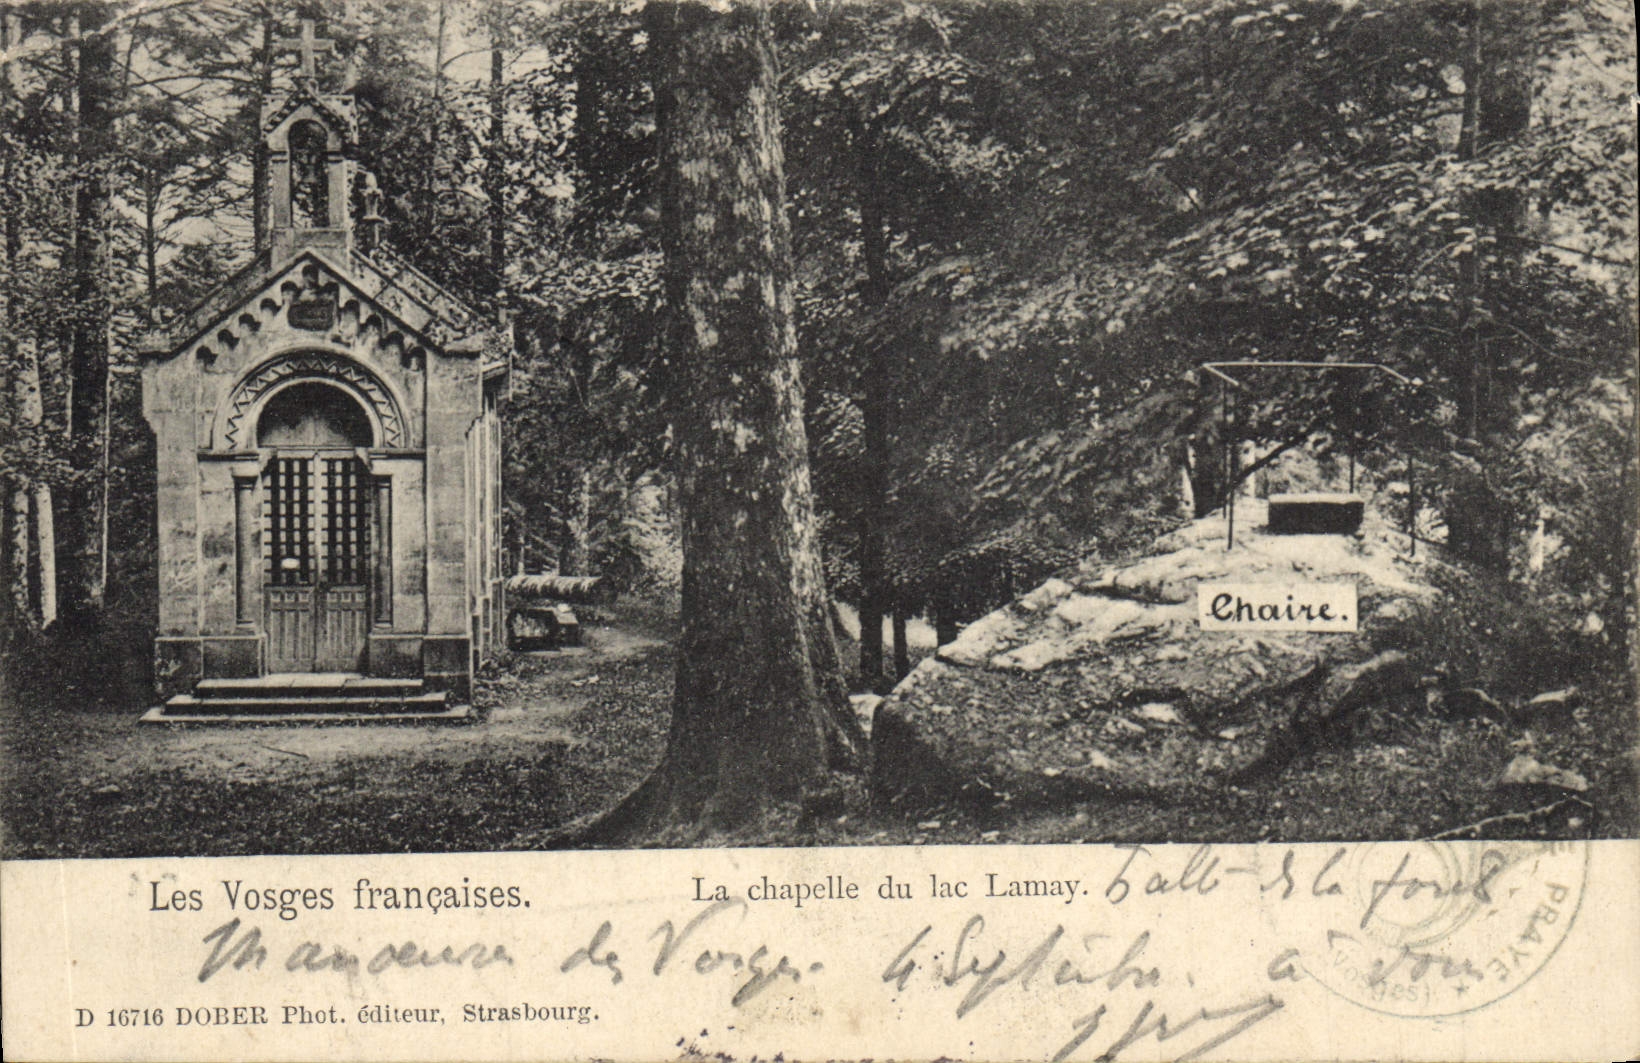 Chaire.
Les Vosges françaises.
La chapelle du lac Lamay. de la
Manoeuvres des Vosges. 4 Septembre. à vous
D 16716 DOBER Phot. éditeur, Strasbourg.
PRAYE
(Vosges)